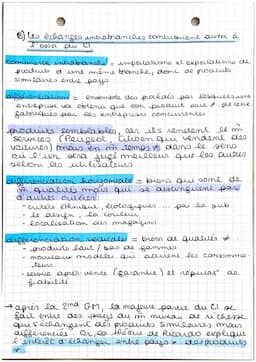 c) Les échanges intrabranches contribuent aussi à
l'essor du CI
commerce intrabranche = importations et exportations de
produits d'une même branche, donc de produits
similaires entre pays
différenciation = ensemble des procédés par lesquels une
entreprise va obtenir que son produit soit ≠ de ceux
fabriqués par les entreprises concurrentes
produits semblables car ils rendent le m̂
service (Peugeot, Citroën qui vendent des
voitures) mais en m̂ temps ≠ dans le sens
où l'un sera jugé meilleur que les autres
selon les utilisateurs
différenciation horizontale = biens qui sont de
m̂ qualités mais qui se distinguent par
d'autres critères :
- critère éthique, écologiques ... par la pub
- le design, la couleur
- localisation des magasins
différenciation verticale = biens de qualités ≠
- produits haut / bas de gammes
- nouveaux modèles qui attirent les consomma-
teurs
- service après-vente (garantie) et réputat° de
fiabilité
→ après la 2nd GM, la majeure partie du CI se
fait entre des pays du m̂ niveau de richesse
qui s'échangent des produits similaires mais
différenciés. Or, la théorie de Ricardo explique
l'intérêt d'échanger entre pays ≠ des produits
≠